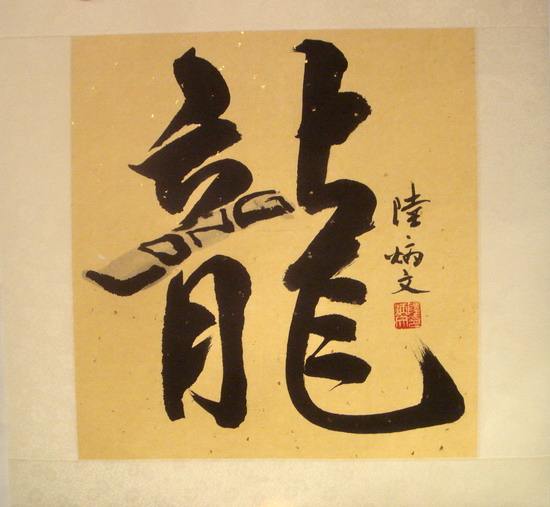 龍
LONG
陸炳文